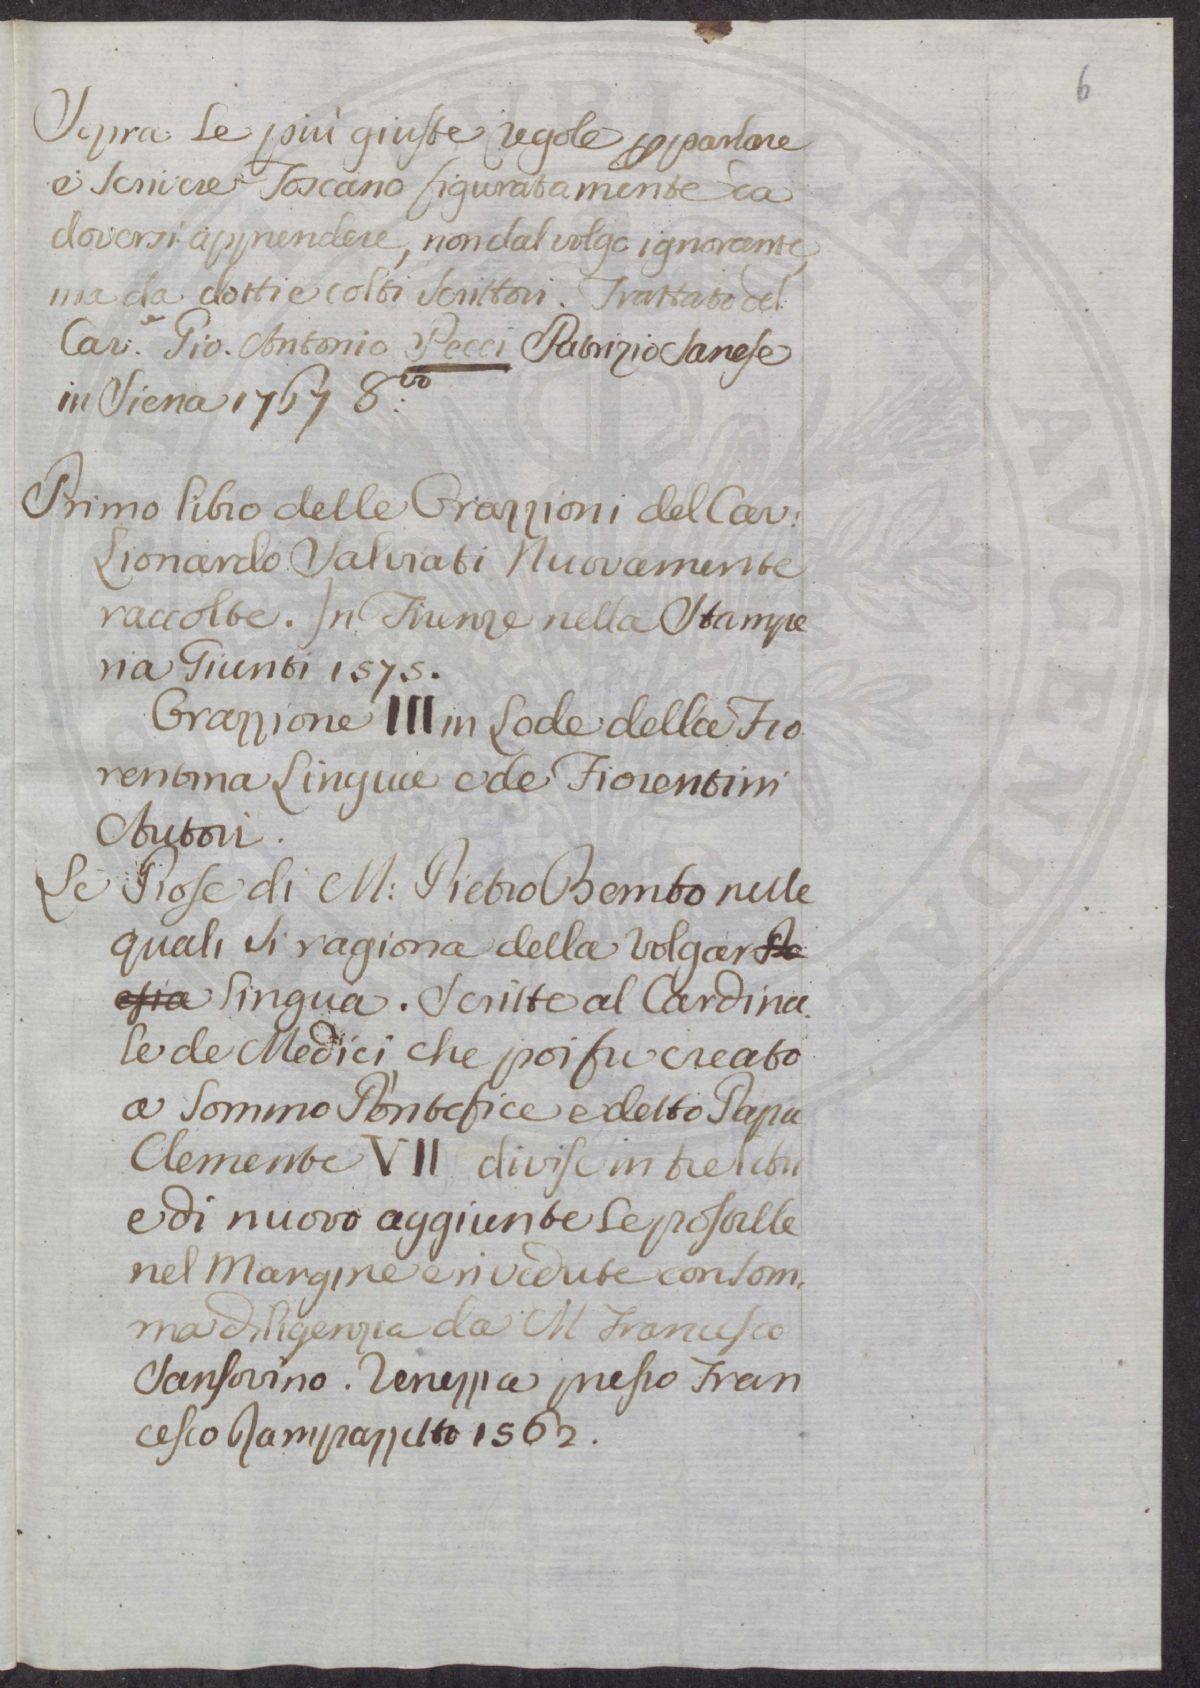 6
Sopra le più giuste regole p parlare
e scrivere Toscano figuratamente da
doversi apprendere, non dal volgo ignorante,
ma da dotti e colti scrittori. Trattato del
Cav.e Gio. Antonio Pecci Patrizio Sanese
in Siena 1767 8.vo
Primo libro delle Orazzioni del Cav:
Lionardo Salviati Nuovamente
raccolte. In Firenze nella Stampe
ria Giunti 1575.
Orazzione III in Lode della Fio
rentina Lingua e de Fiorentini
Autori.
Le Prose di M: Pietro Bembo nelle
quali si ragiona della Volgar Po
esia lingua. Scritte al Cardina
le de Medici, che poi fu creato
a Sommo Pontefice e detto Papa
Clemente VII divise in tre libri
e di nuovo aggiunte le postille
nel Margine e rivedute con som
ma diligenzia da M Francesco
Sansovino. Venezzia presso Fran
cesco Rampazzetto 1562.